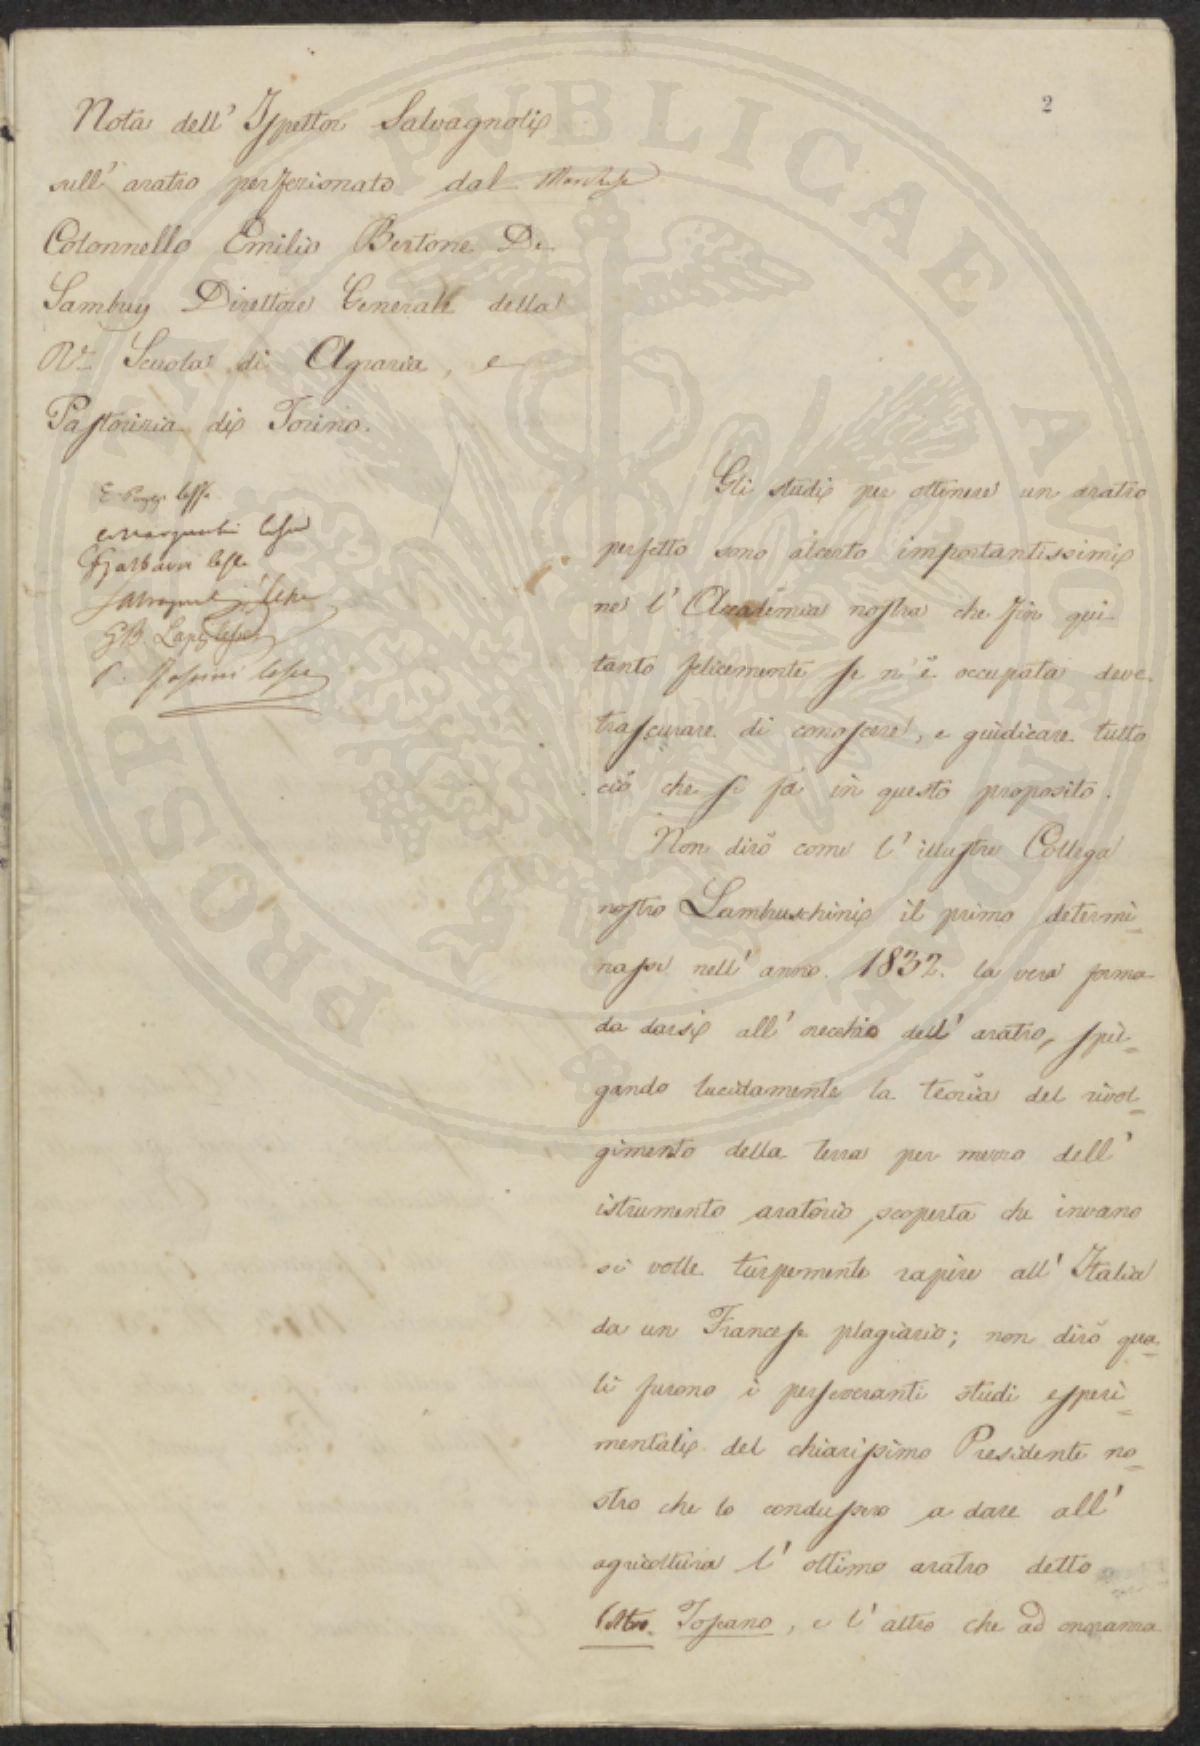 2
Nota dell' Ispettor Salvagnoli
sull' aratro perfezionato dal Marchese
Colonnello Emilio Bertone De
Sambuy Direttore Generale della
Ra Scuola di Agraria, e
Pastorizia di Torino.
E. Poggi
GB. Lapi
Gli studi per ottenere un aratro
perfetto sono alcerto importantissimi
ne l' Accademia nostra che fin qui
tanto felicemente se n'è occupata deve
trascurare di conoscere, e giudicare tutto
ciò che si fà in questo proposito.
Non dirò come l' illustre Collega
nostro Lambruschini il primo determi=
nasse nell' anno 1832. la vera forma
da darsi all' orecchio dell' aratro, spie=
gando lucidamente la teoria del rivol=
gimento della terra per mezzo dell'
istrumento aratorio, scoperta che invano
si volle turpemente rapire all' Italia
da un Francese plagiario; non dirò qua=
li furono i perseveranti studi esperi=
mentali del chiarissimo Presidente no=
stro che lo condussero a dare all'
agricoltura l' ottimo aratro detto
Coltro Toscano, e l' altro che ad onoranza
PROSPERITATI PUBLICAE AUGENDAE